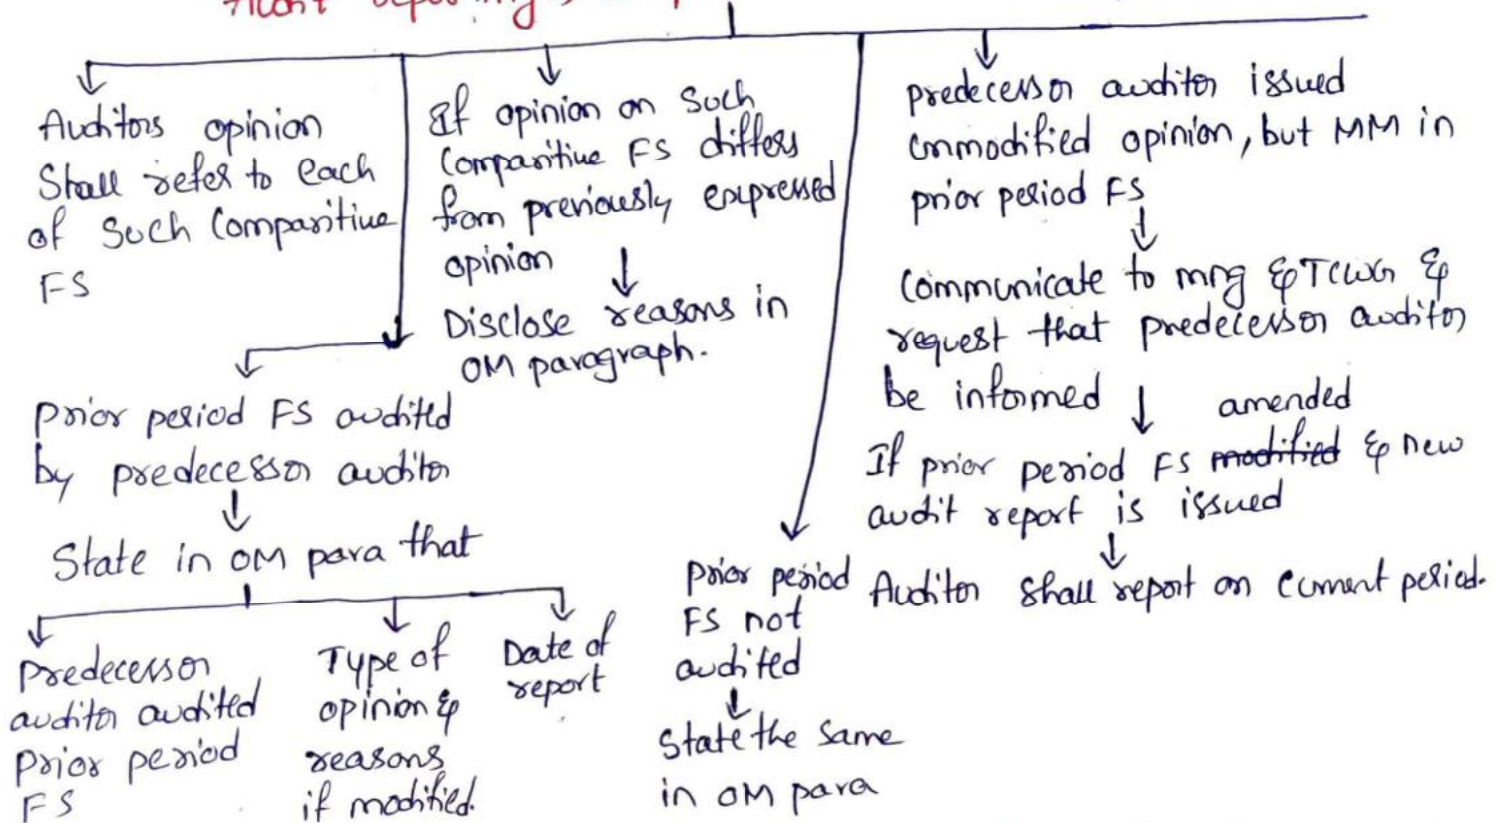 Audit reporting
Auditors opinion
Shall refer to each
of Such Comparitive
FS
If opinion on Such
Comparitive FS differs
from previously expressed
opinion
Disclose reasons in
OM paragraph.
predecessor auditor issued
unmodified opinion, but MM in
prior period FS
Communicate to mng & TCWG &
request that predecessor auditor
be informed
amended
If prior period FS modified & new
audit report is issued
Auditor shall report on current period.
prior period FS audited
by predecessor auditor
State in OM para that
Predecessor
auditor audited
Prior period
FS
Type of
opinion &
reasons
if modified.
Date of
report
prior period
FS not
audited
State the same
in OM para